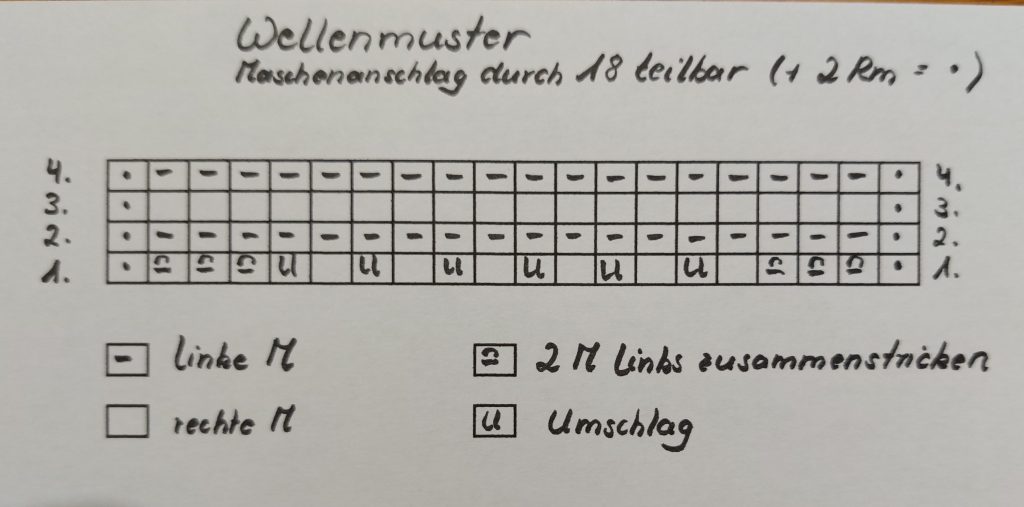 Wellenmuster
Maschenanschlag durch 18 teilbar (+ 2 Rm = •)
4. • - - - - - - - - - - - - - - - - - - • 4.
3. • • 3.
2. • - - - - - - - - - - - - - - - - - - • 2.
1. • ᘯ ᘯ ᘯ U U U U U U ᘯ ᘯ ᘯ • 1.
- linke M
ᘯ 2 M links zusammenstricken
rechte M
U Umschlag